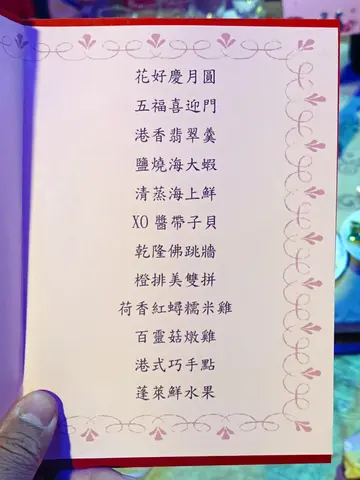 花好慶月圓
五福喜迎門
港香翡翠羹
鹽燒海大蝦
清蒸海上鮮
XO醬帶子貝
乾隆佛跳牆
橙排美雙拼
荷香紅蟳糯米雞
百靈菇燉雞
港式巧手點
蓬萊鮮水果